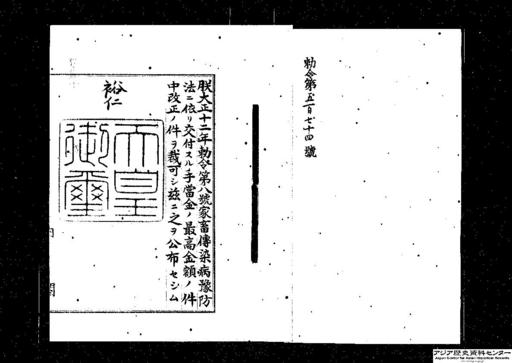 勅令第五百七十四號
朕大正十二年勅令第八號家畜傳染病豫防
法ニ依リ交付スル手當金ノ最高金額ノ件
中改正ノ件ヲ裁可シ玆ニ之ヲ公布セシム
裕仁
天皇
御璽
アジア歴史資料センター
Japan Center for Asian Historical Records